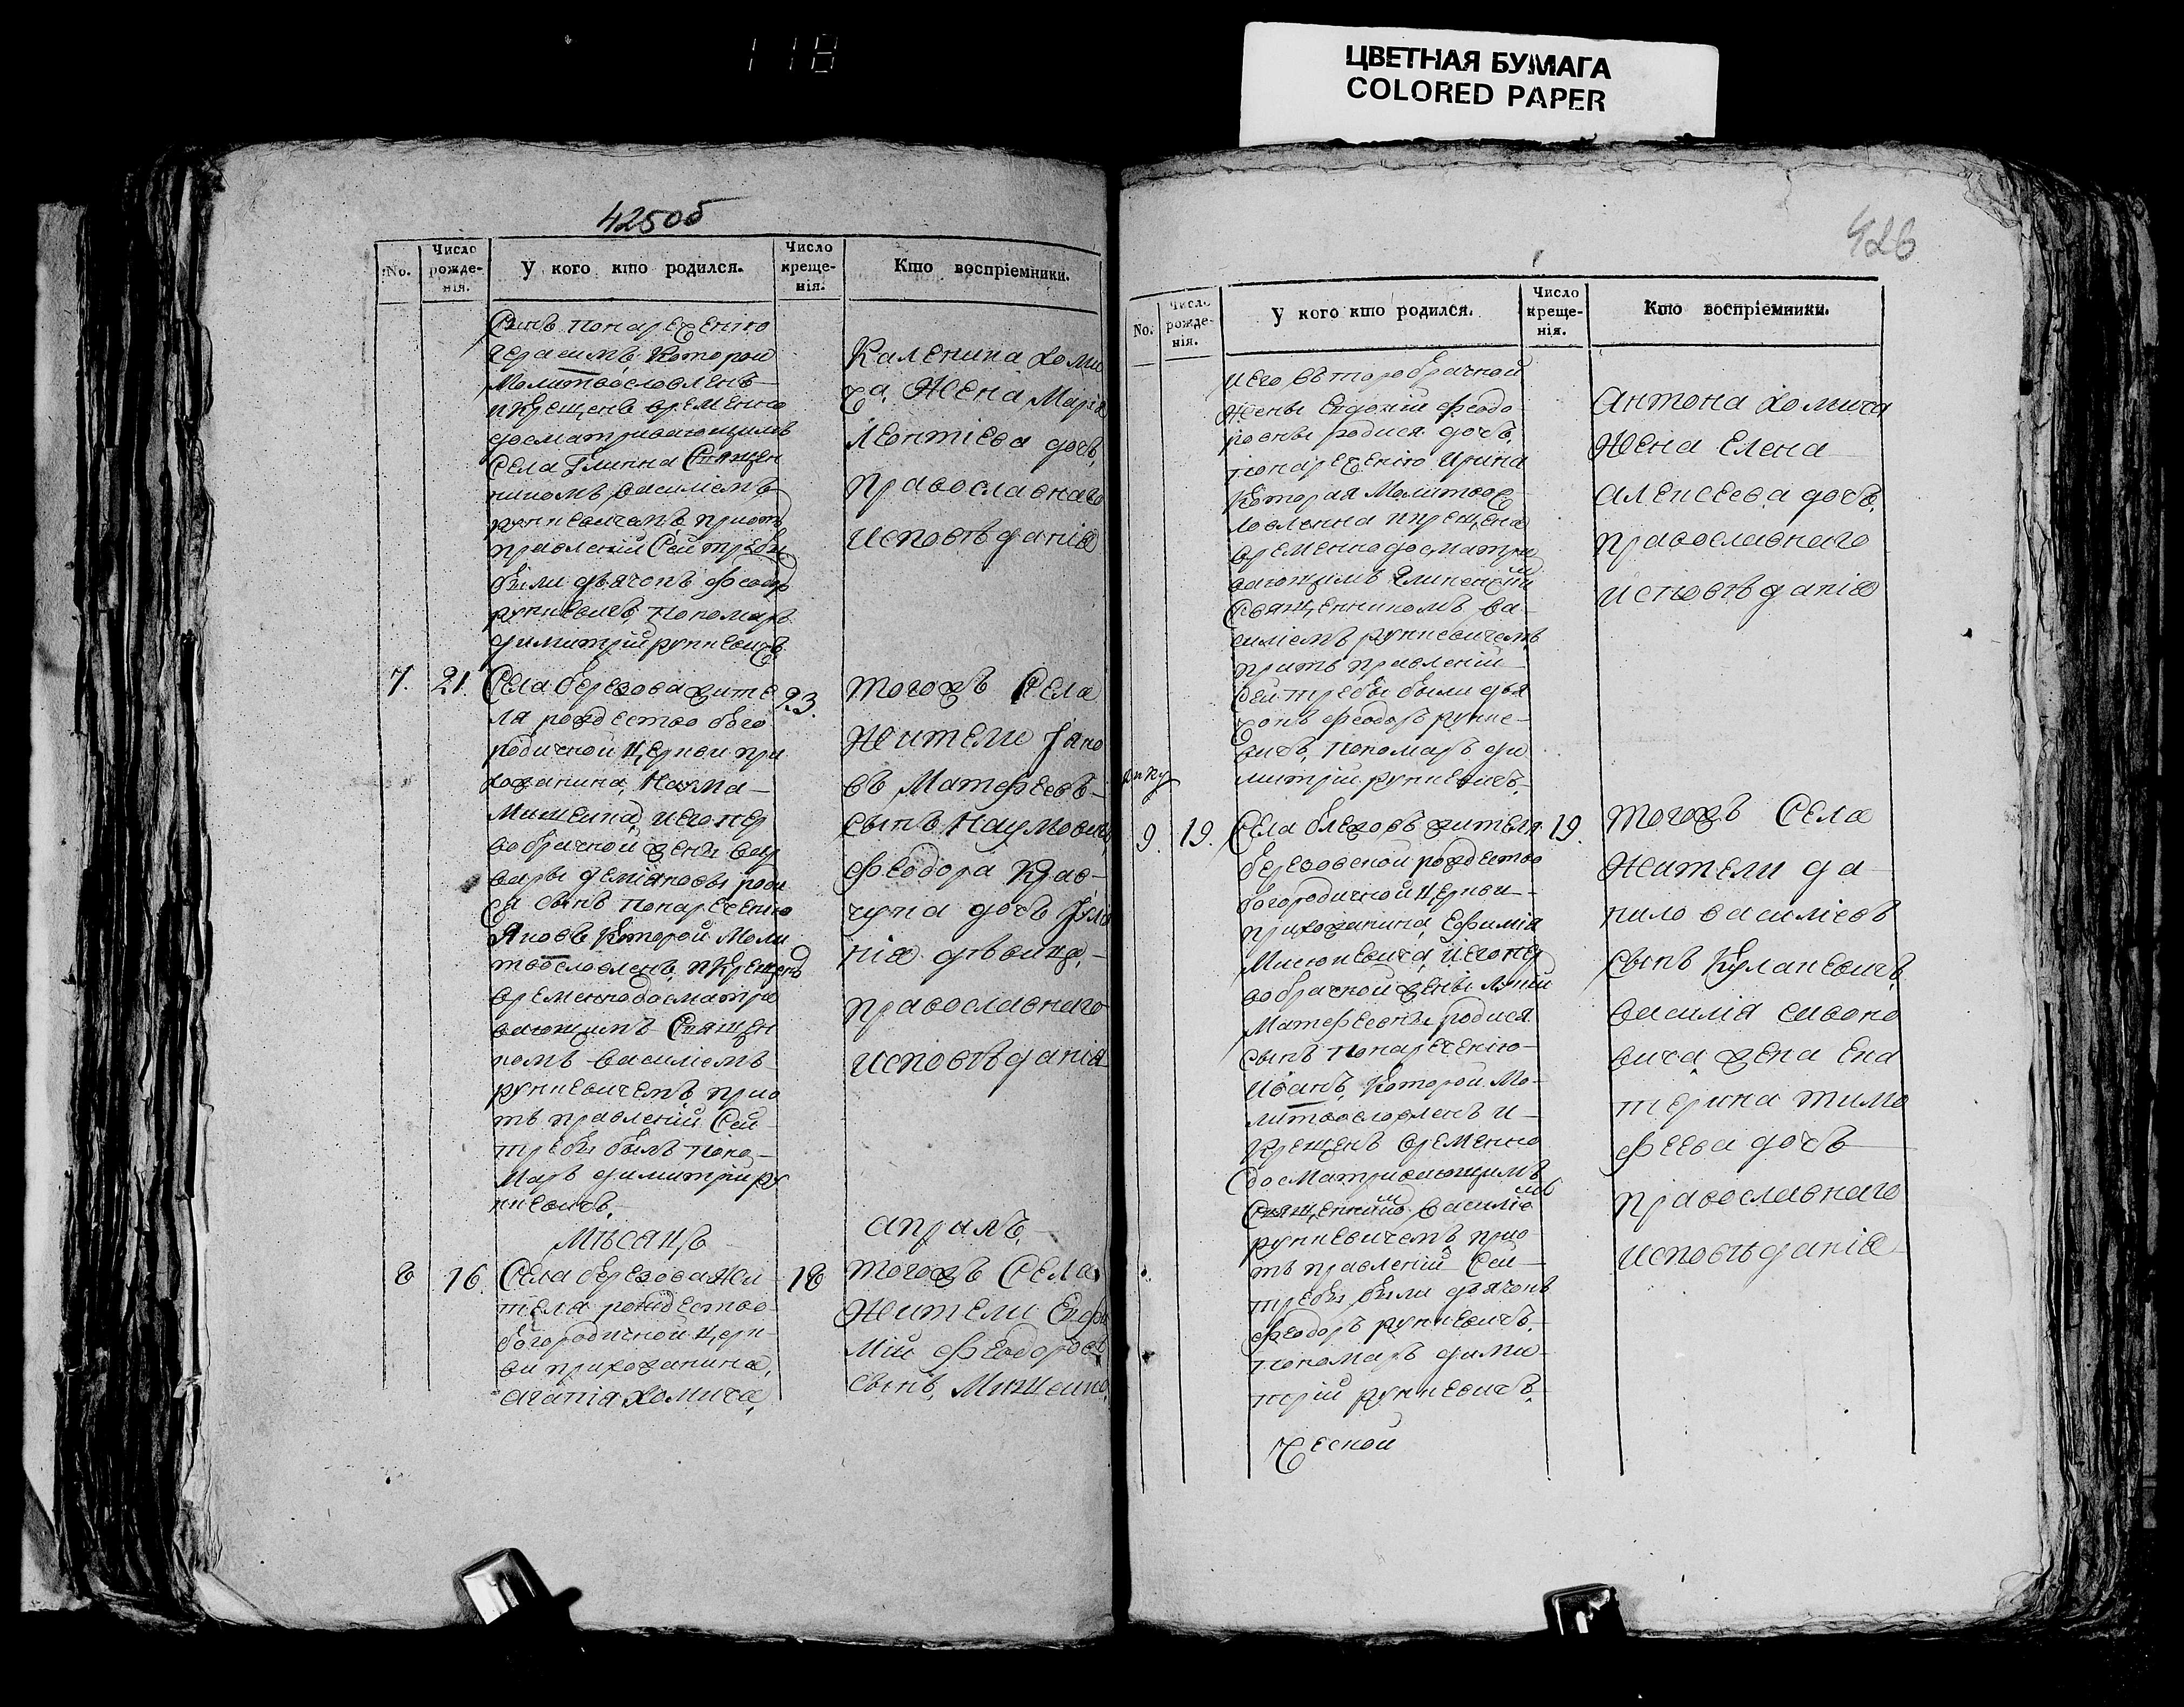 118
ЦВЕТНАЯ БУМАГА
COLORED PAPER
425об
No.
Число рожде-нія.
У кого кто родился.
Число креще-нія.
Кто воспріемники.
Сынъ понаречению
Герасимъ, которой
молитвословленъ
и крещенъ временно
досматривающимъ
села Глинна Священ
никомъ василіемъ
рункевичемъ, приот
правленіи Сей требы
были дьячокъ феодор
рункевичъ, пономарь
димитрій рункевичъ.
Каленика хоми
ча, Жена Марія
Леонтіева дочь,
православнаго
исповѣданія
7. 21. Села березова жите 23.
ля рождество бого
родичной церкви при
хожанина, Наума
Мишеина, иегопер
вобрачной жены вар
вары деміяновы роди
ся сынъ понаречению
Яковъ которой моли
твословленъ, и крещенъ
временнодосматри
вающимъ Священ
комъ василіемъ
рункевичемъ, прио
тъ правленіи Сей
требы былъ поно
марь димитрій ру
нкевичъ.
тогожъ Села
Жители Іако
въ Матфеевъ
сынъ Наумович
феодора Крав
чука дочь Іулiа
нія дѣвица,
православнаго
исповѣданія
Мѣсяцъ
апрыль.
8 16. Села березова Жи 18
теля рождество
богородичной церк
ви прихожанина,
агапія хомича,
тогожъ Села
Жители Евфи
мій феодоровъ
сынъ, Мишеин
426
No.
Число рожде-нія.
У кого кто родился.
Число креще-нія.
Кто воспріемники.
иего второбрачной
жены Евдокіи феодо
ровны родися дочь,
понаречению Ирина
которая молитвос
ловленна икрещена
временнодосматри
вающимъ Глинский
Священникомъ ва
силіемъ рункевичемъ
притъ правленіи
Сей требы были дья
чокъ феодоръ рунке
вичъ, пономарь ди
митрій рункевичъ.
антона хомича
Жена Елена
алексеева дочь,
православнаго
исповѣданія
9. 19. Села блежовъ жителя 19.
березовской рождество
богородичной церкви
прихожанина, Ефимія
Мисюкевича, иегопер
вобрачной жены
Матфеевны родися
сынъ понаречению
Иванъ, которой мо
литвословленъ и
крещенъ временно
досматривающимъ
василіе
рункевичемъ, прио
тъ правленіи Сей
требы были дьячокъ
феодоръ рункевичъ,
пономарь дими
трій рункевичъ.
Ческой
тогожъ Села
Жители да
нило василіевъ
сынъ Кулакевичъ,
василія сивоко
вича жена Ека
терина тимо
феева дочь
православнаго
исповѣданія